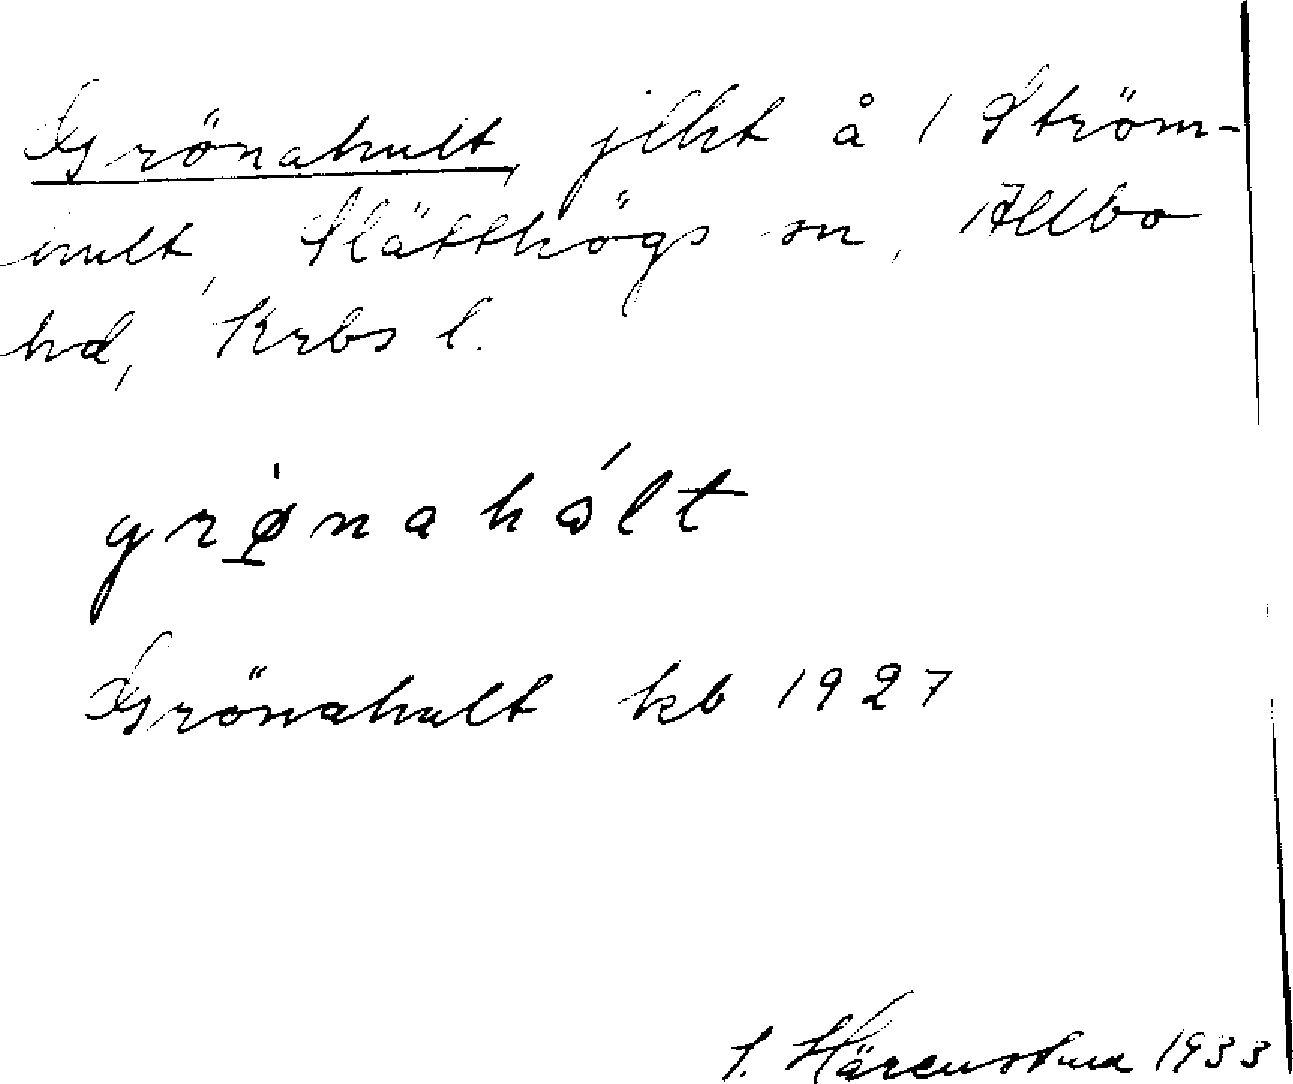 Grönahult, jlht å 1 Ström-
hult, Slätthögs sn, Allbo
hd, Krbs l.
grø̱̍nahólt
Grönahult kb 1927
1933